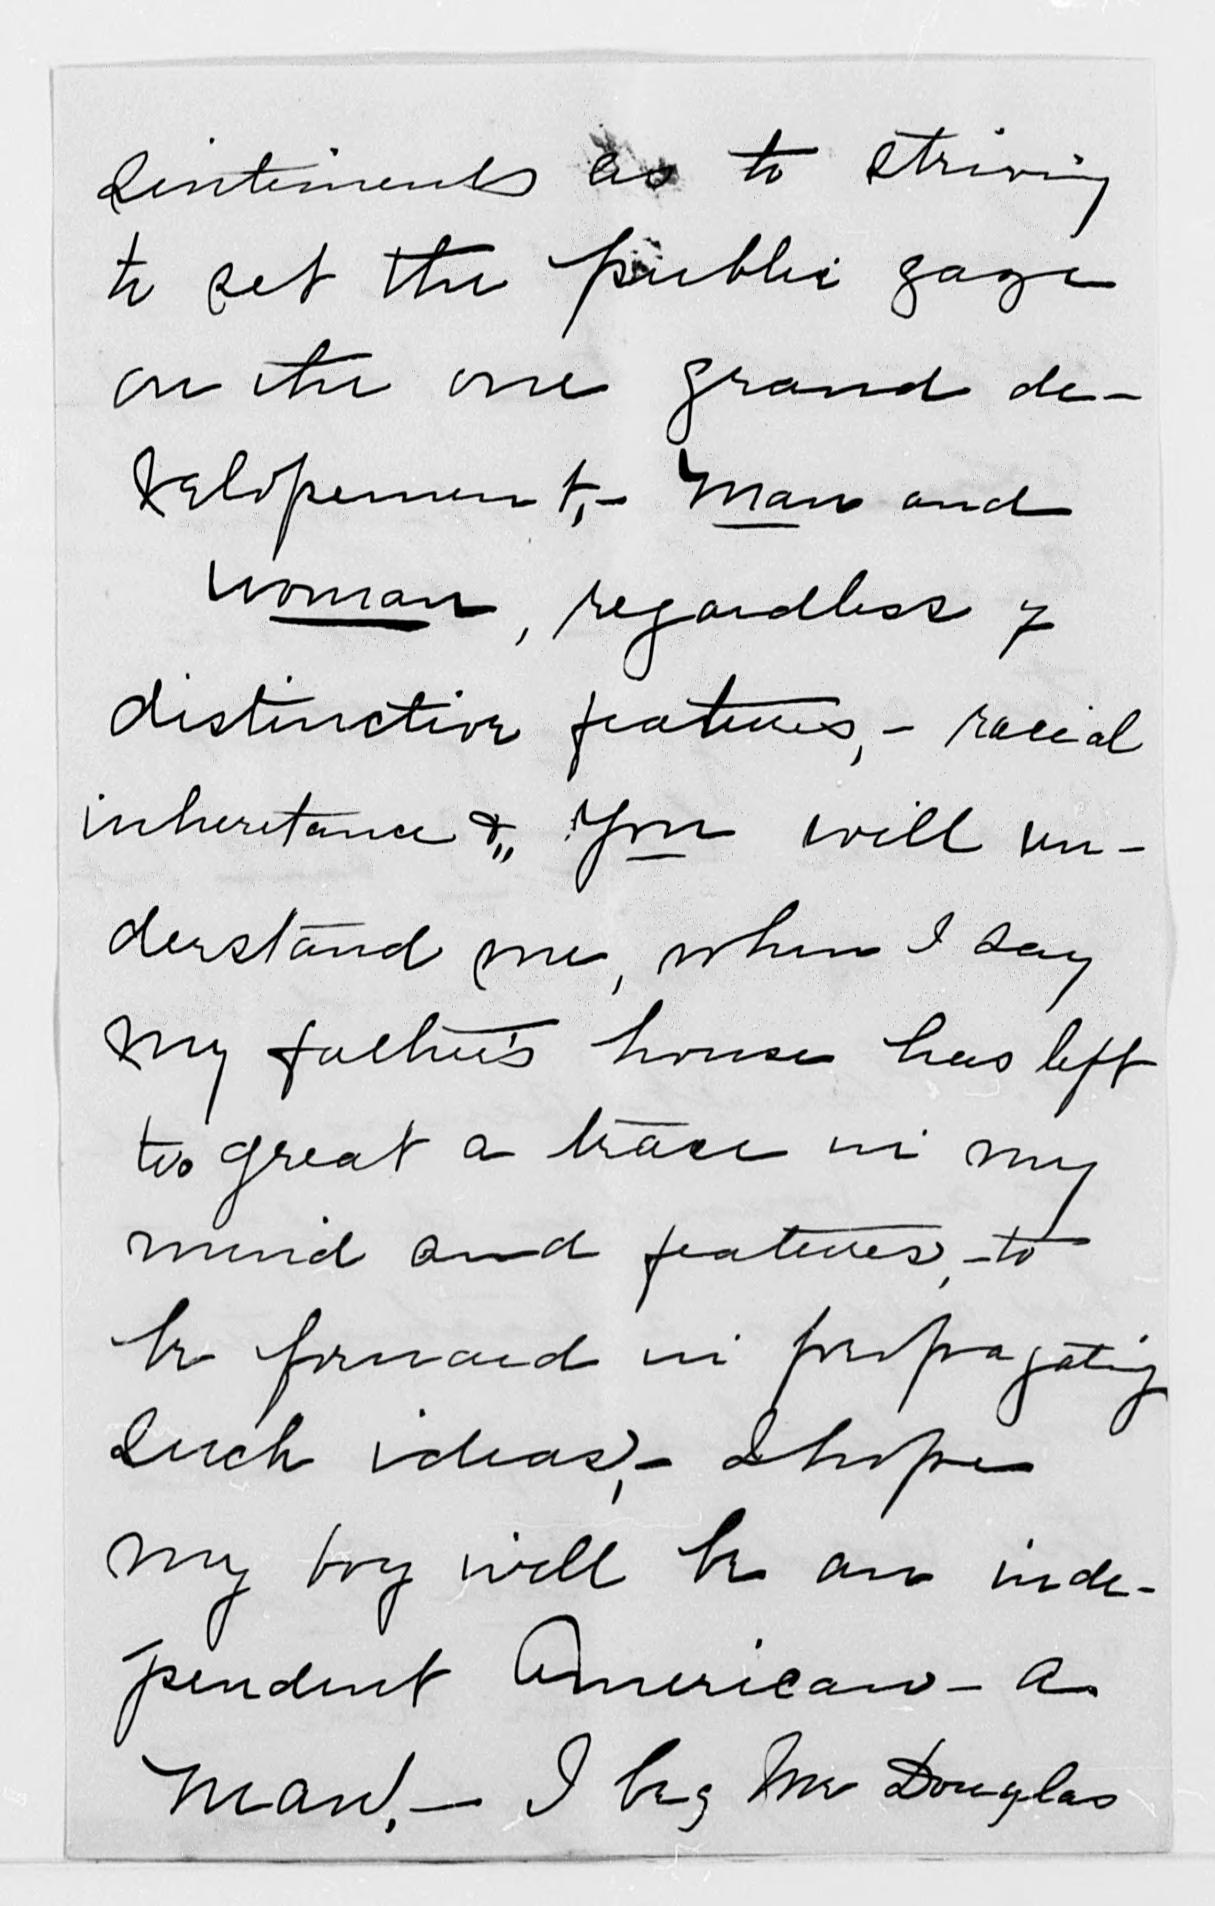 sentiments as to striving
to set the public gaze
on the one grand de-
velopement,- Man and
woman, regardless of
distinctive features,- racial
inheretance &,, You will un-
derstand me, when I say
my father's house has left
too great a trace in my
mind and features,-to
be forward in propagating
such ideas,- I hope
my boy will be an inde-
pendent American - a
man!,- I beg Mr Douglas